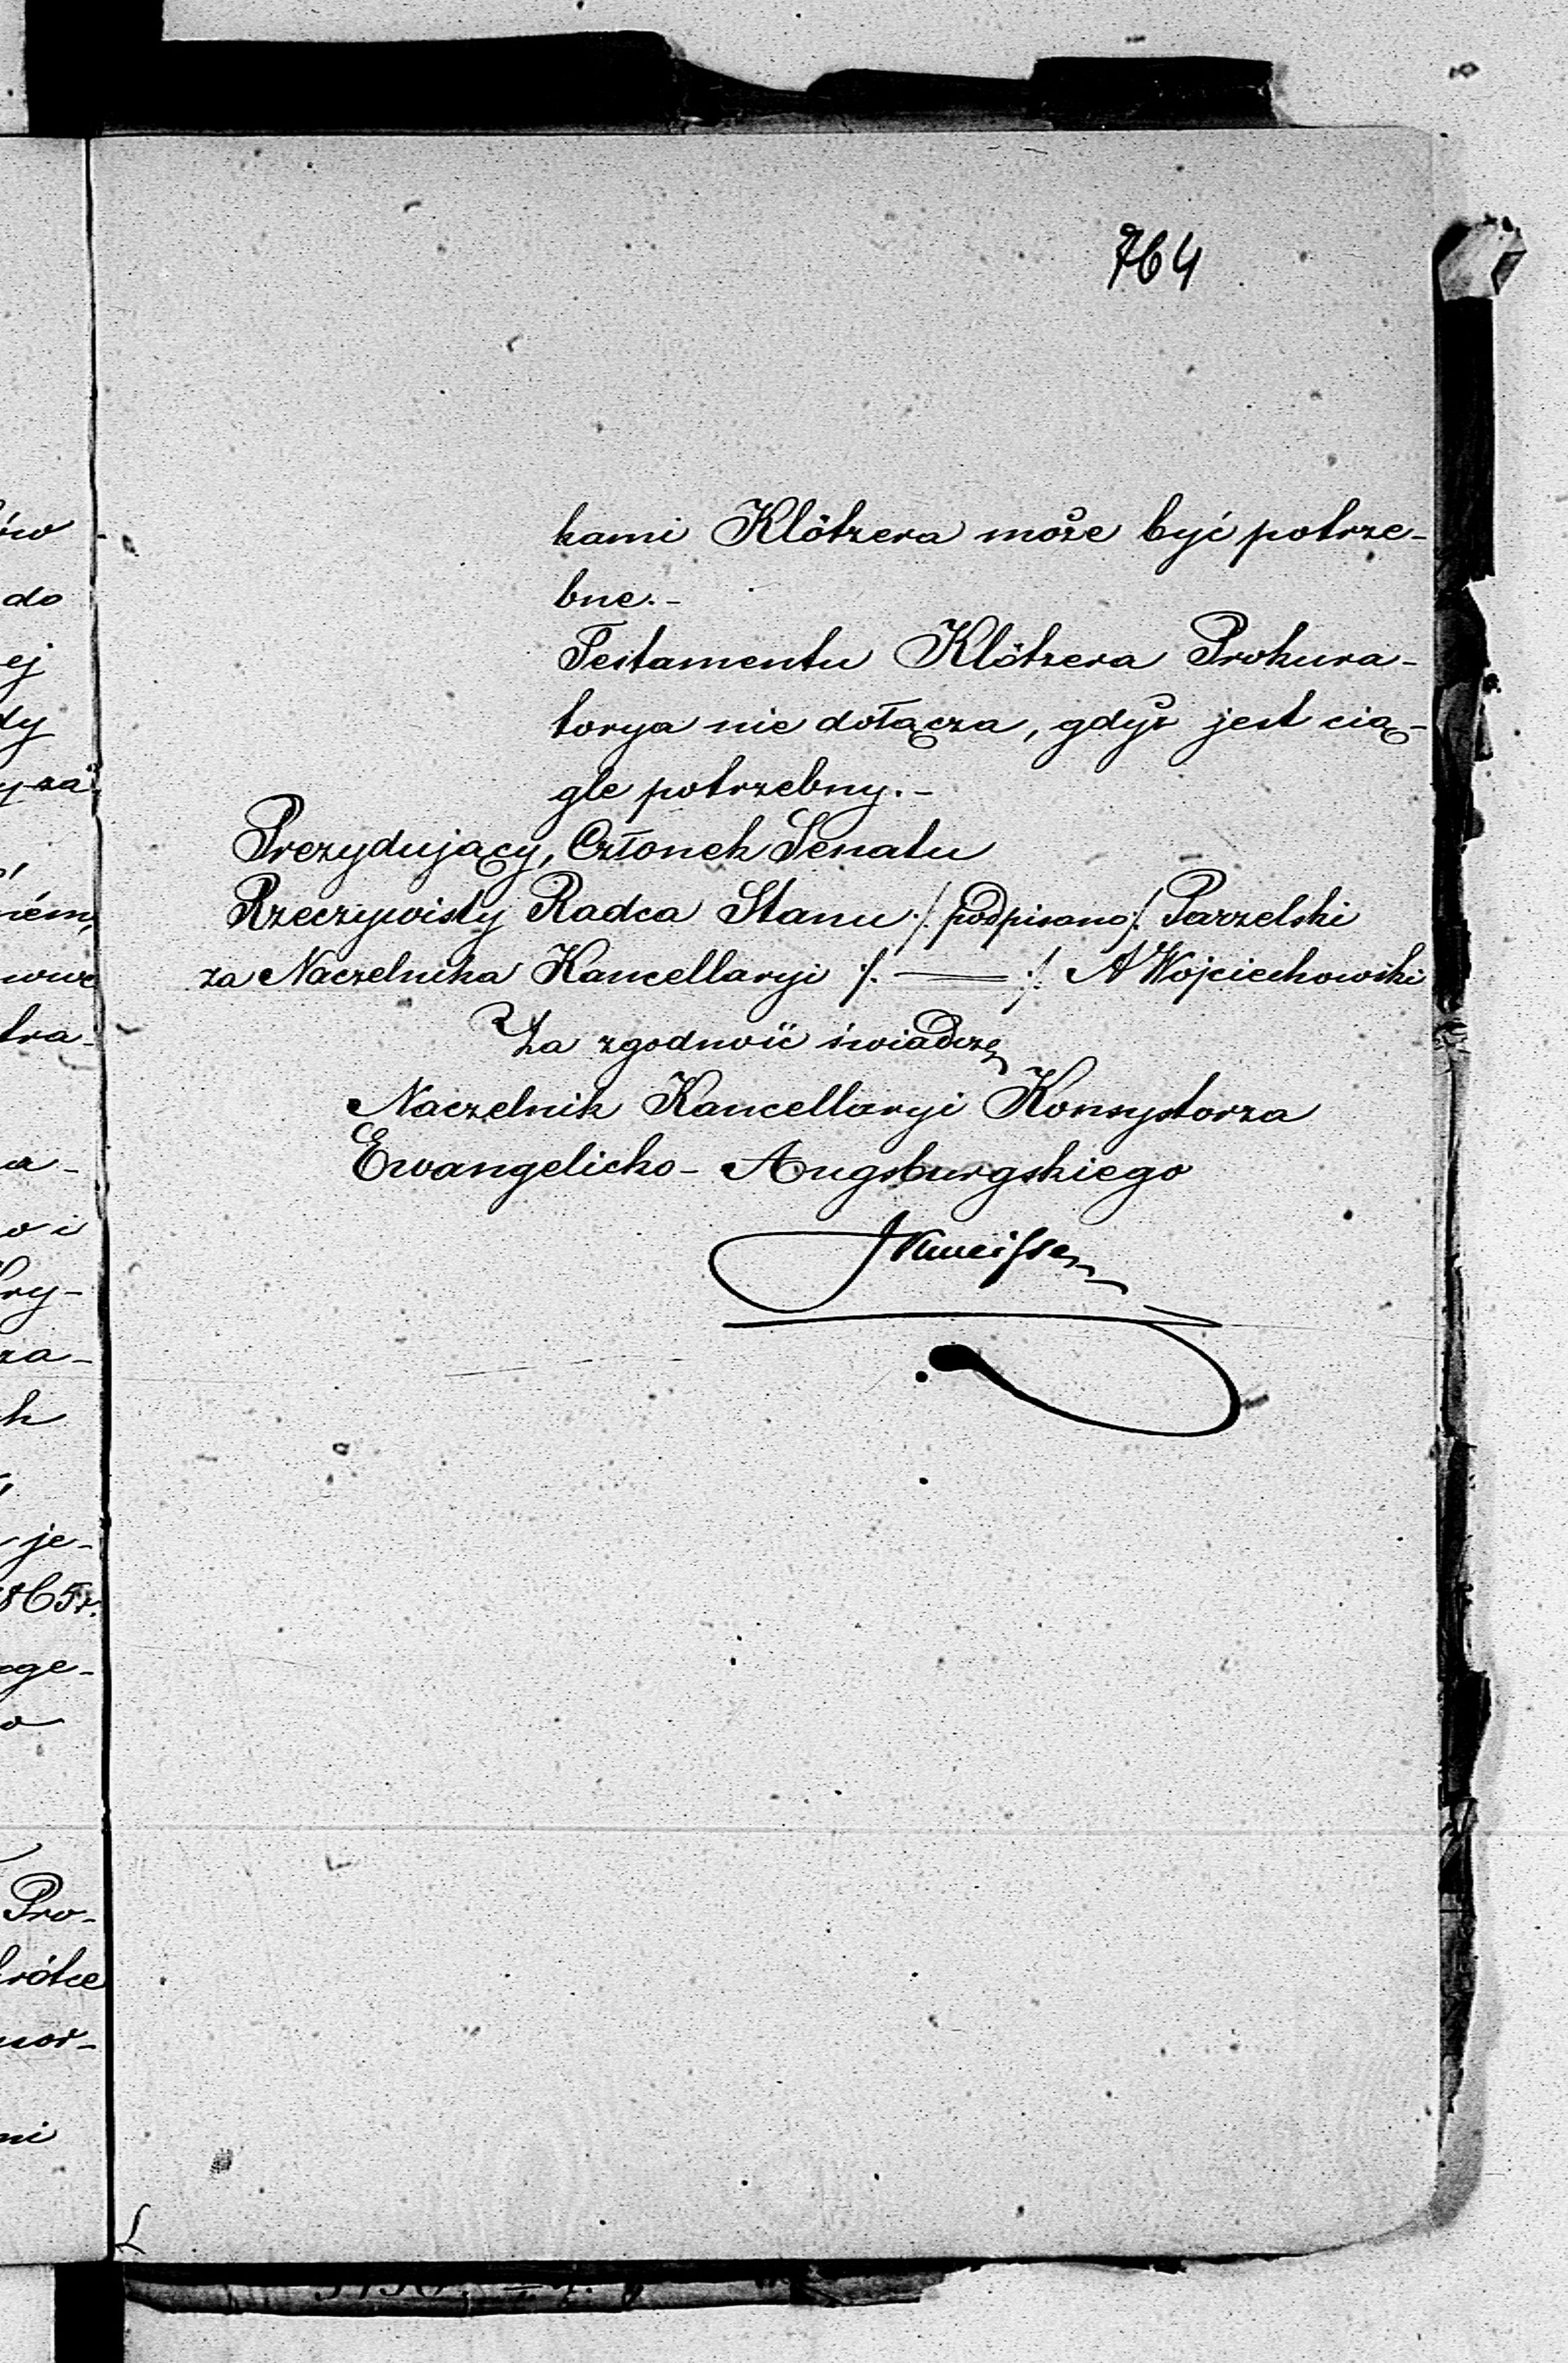 764
kami Klötzera może być potrze-
bne.-
Testamentu Klötzera Prokura-
torya nie dołącza, gdyż jest cią-
gle potrzebny.-
Prezydujący, Członek Senatu
Rzeczywisty Radca Stanu ./. podpisano ./. Parzelski
za Naczelnika Kancellaryi ./. —— ./. A Wojciechowski
Za zgodność świadczę
Naczelnik Kancellaryi Konsystorza
Ewangelicko-Augsburgskiego